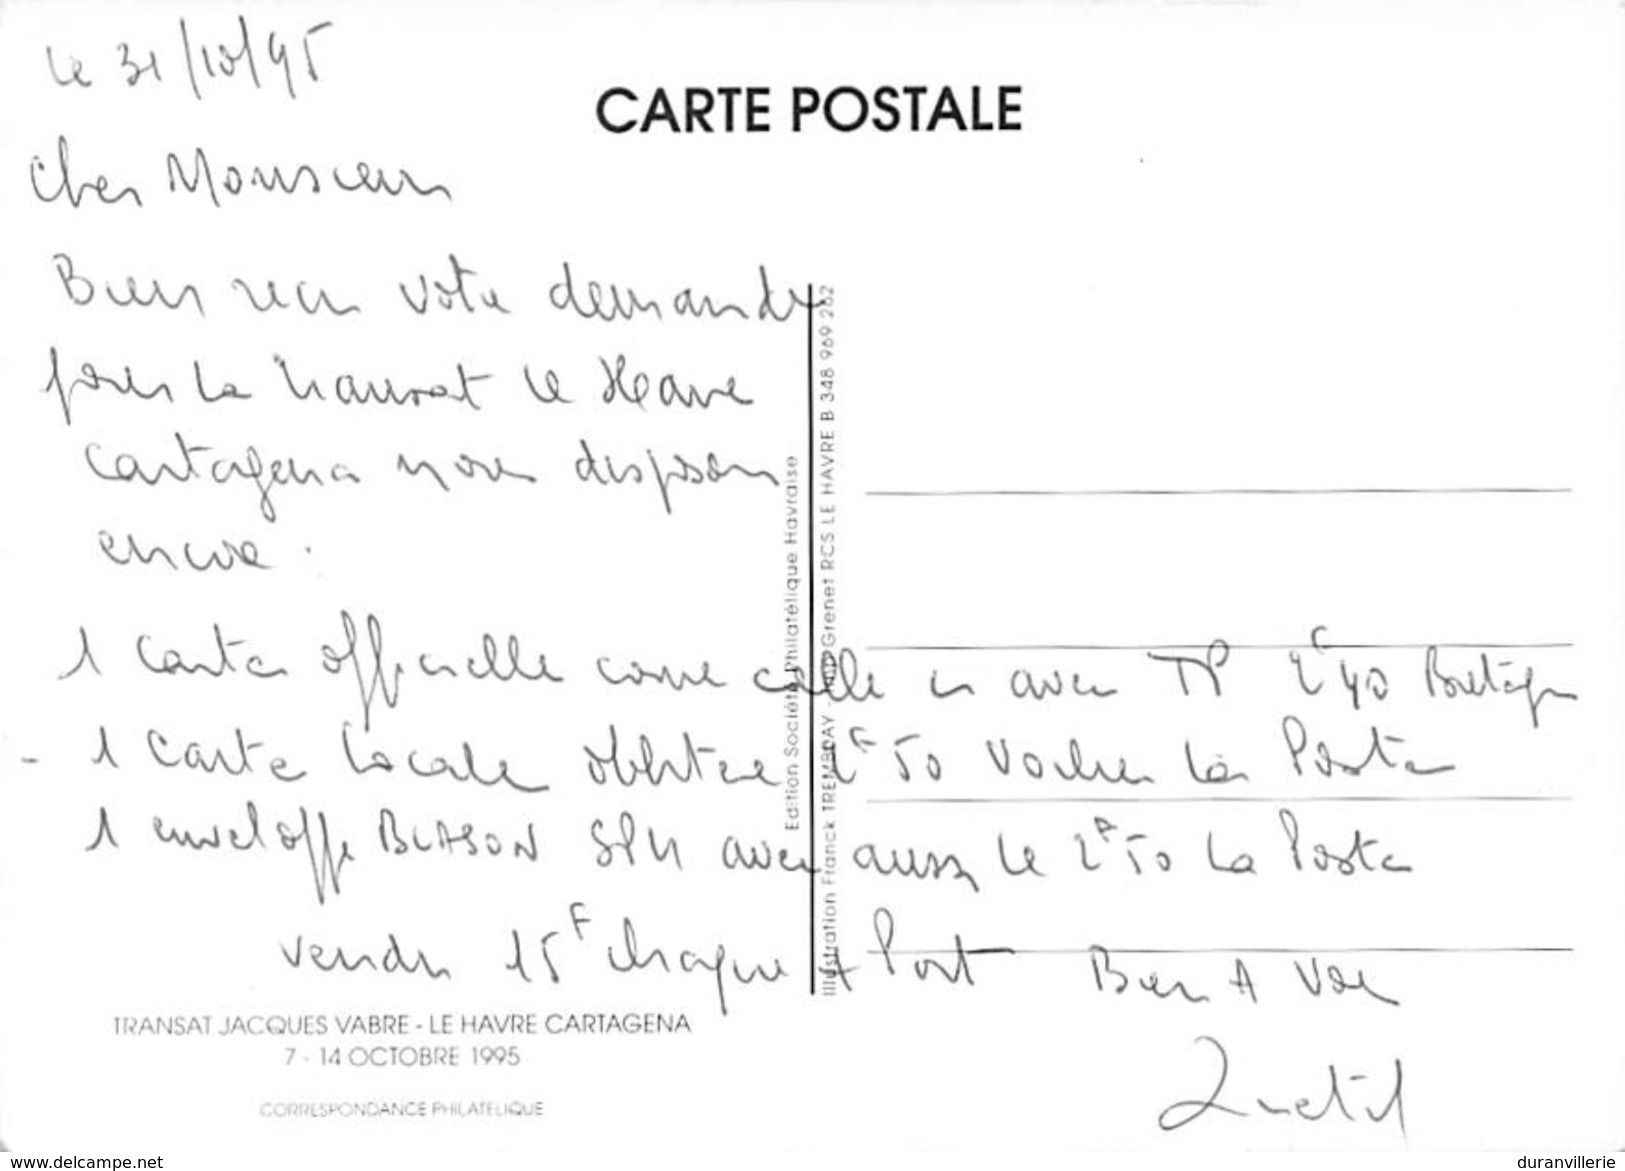 le 31/10/95
CARTE POSTALE
Cher Monsieur
Bien reçu votre demande
pour la transat Le Havre
Cartagena nous disposons
encore.
1 carte officielle comme celle ci avec TP 2F40 Bretagne
- 1 carte locale oblitérée 2F50 Voilier La Poste
1 enveloppe BLASON SPH avec aussi le 2F50 La Poste
vendu 15F chaque + Port Bien A Vous
Edition Société Philatélique Havraise
Illustration Franck TREMBLAY - Imp Grenet RCS LE HAVRE B 348 969 262
TRANSAT JACQUES VABRE - LE HAVRE CARTAGENA
7 - 14 OCTOBRE 1995
CORRESPONDANCE PHILATELIQUE
www.delcampe.net
duranvillerie